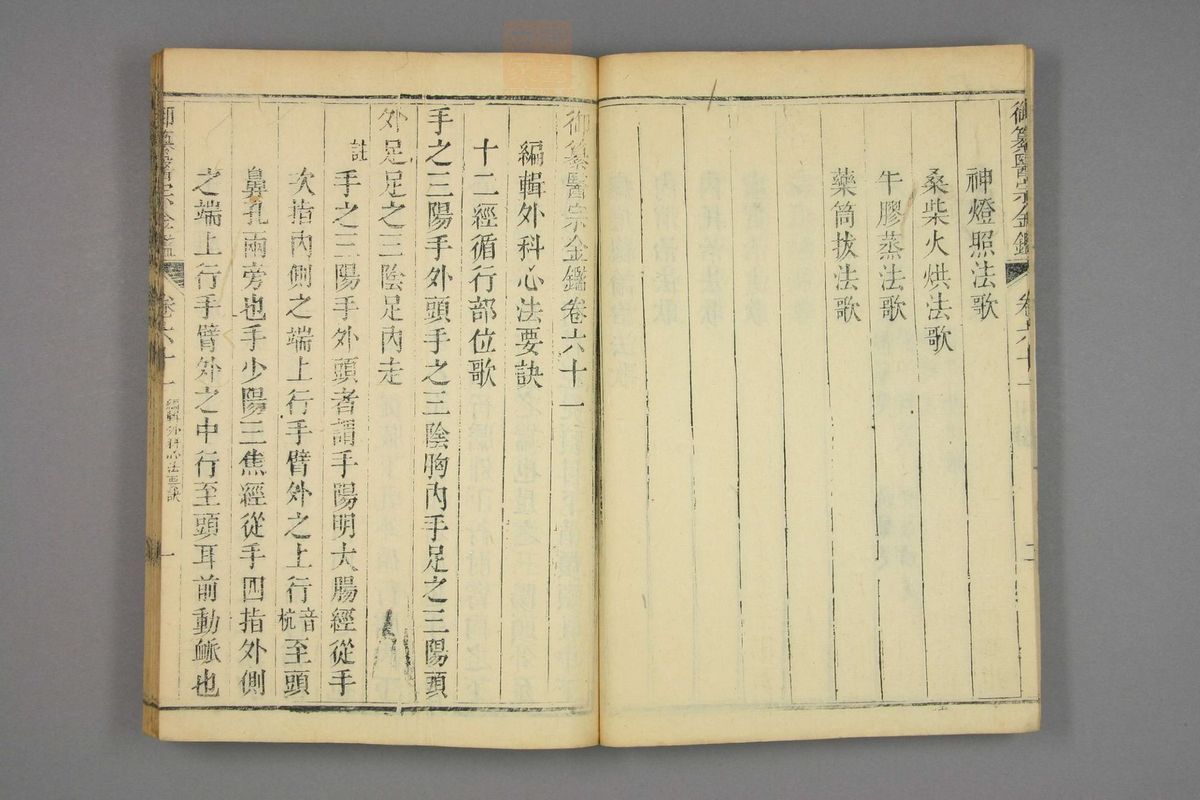 御纂醫宗金鑑
卷六十一
二
神燈照法歌
桑柴火烘法歌
牛膠蒸法歌
藥筒拔法歌
御纂醫宗金鑑卷六十一
編輯外科心法要訣
十二經循行部位歌
手之三陽手外頭手之三陰胸內手足之三陽頭
外足足之三陰足內走
註手之三陽手外頭者謂手陽明大腸經從手
次指內側之端上行手臂外之上行音杭至頭
鼻孔兩旁也手少陽三焦經從手四指外側
之端上行手臂外之中行至頭耳前動脈也
御纂醫宗金鑑
卷六十一
編輯外科心法要訣
一